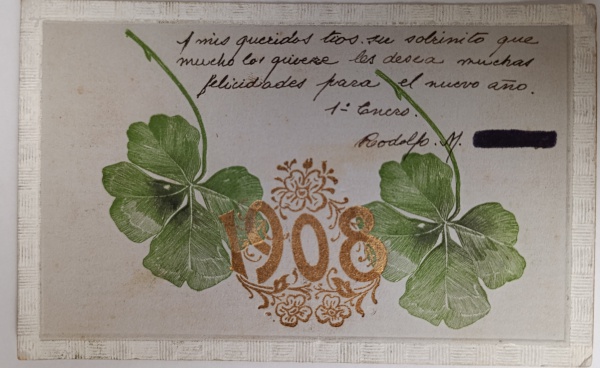 A mis queridos tios. su sobrinito que
mucho los quiere les desea muchas
felicidades para el nuevo año.
1º Enero.
Rodolfo. M.
1908